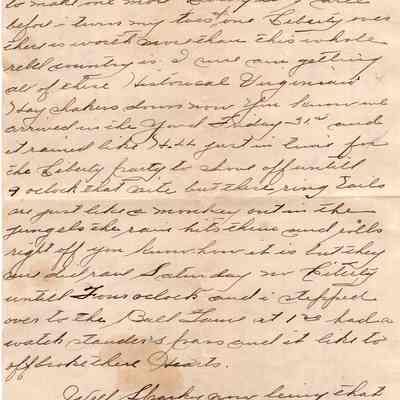 to make one more
before i turn my toes one Liberty over
there is worth more than this whole
rebel country is. i we are getting
all of these Historical Virginian
Hay shakers down now you know we
arrived in the Yard Friday 31st and
it rained like H-LL just in time for
the Liberty party to shove off untill
9 oclock that nite but these ring tails
is just like a monkey out in the
jungels the rain hits them and rolls
right off you know how it is but they
did rate Saturday no Liberty
untill Four oclock and i stepped
over to the Ball Game at 1 had a
watch standers pass and it like to
off broke there Hearts.
Well Sharky now being that